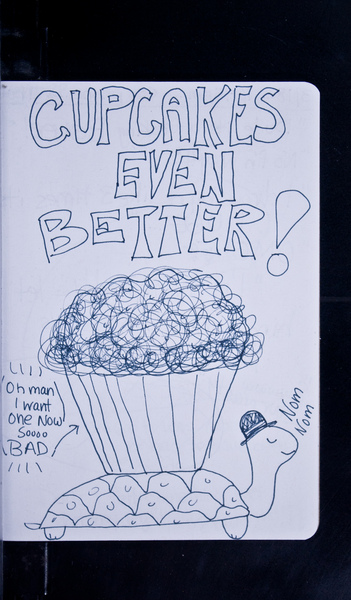 CUPCAKES
EVEN
BETTER!
Oh man
I want
one Now
Soooo
BAD
Nom
Nom